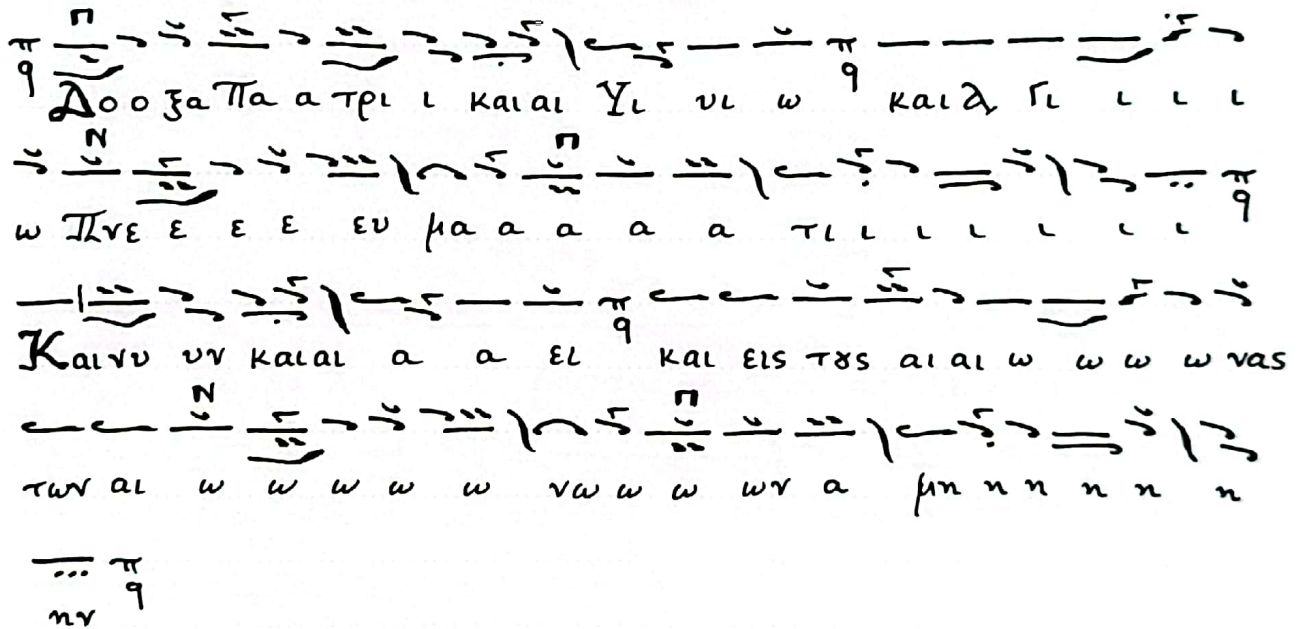 Δο ο ξα Πα α τρι ι και αι Υι υι ω και Ἁ γι ι ι ι
ω Πνε ε ε ε ευ μα α α α α τι ι ι ι ι ι
Και νυ υν και αι α α ει και εις τȣς αι αι ω ω ω ω νας
των αι ω ω ω ω ω νω ω ω ων α μη η η η η η
ην